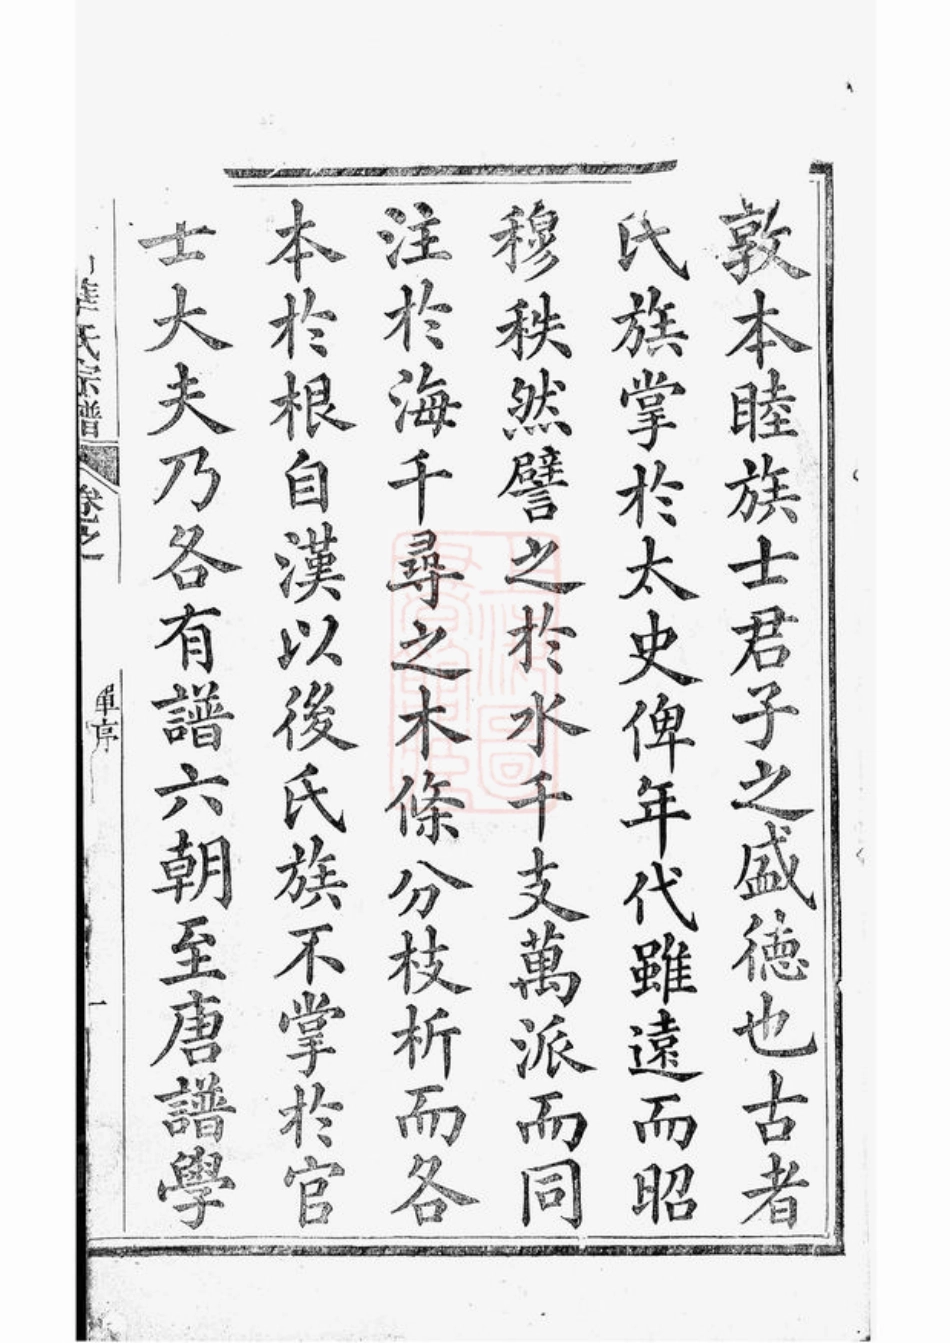 敦本睦族士君子之盛德也古者
氏族掌於太史俾年代雖遠而昭
穆秩然譬之於水千支萬派而同
注於海千尋之木條分枝析而各
本於根自漢以後氏族不掌於官
士大夫乃各有譜六朝至唐譜學
氏宗譜
卷之
單序
一